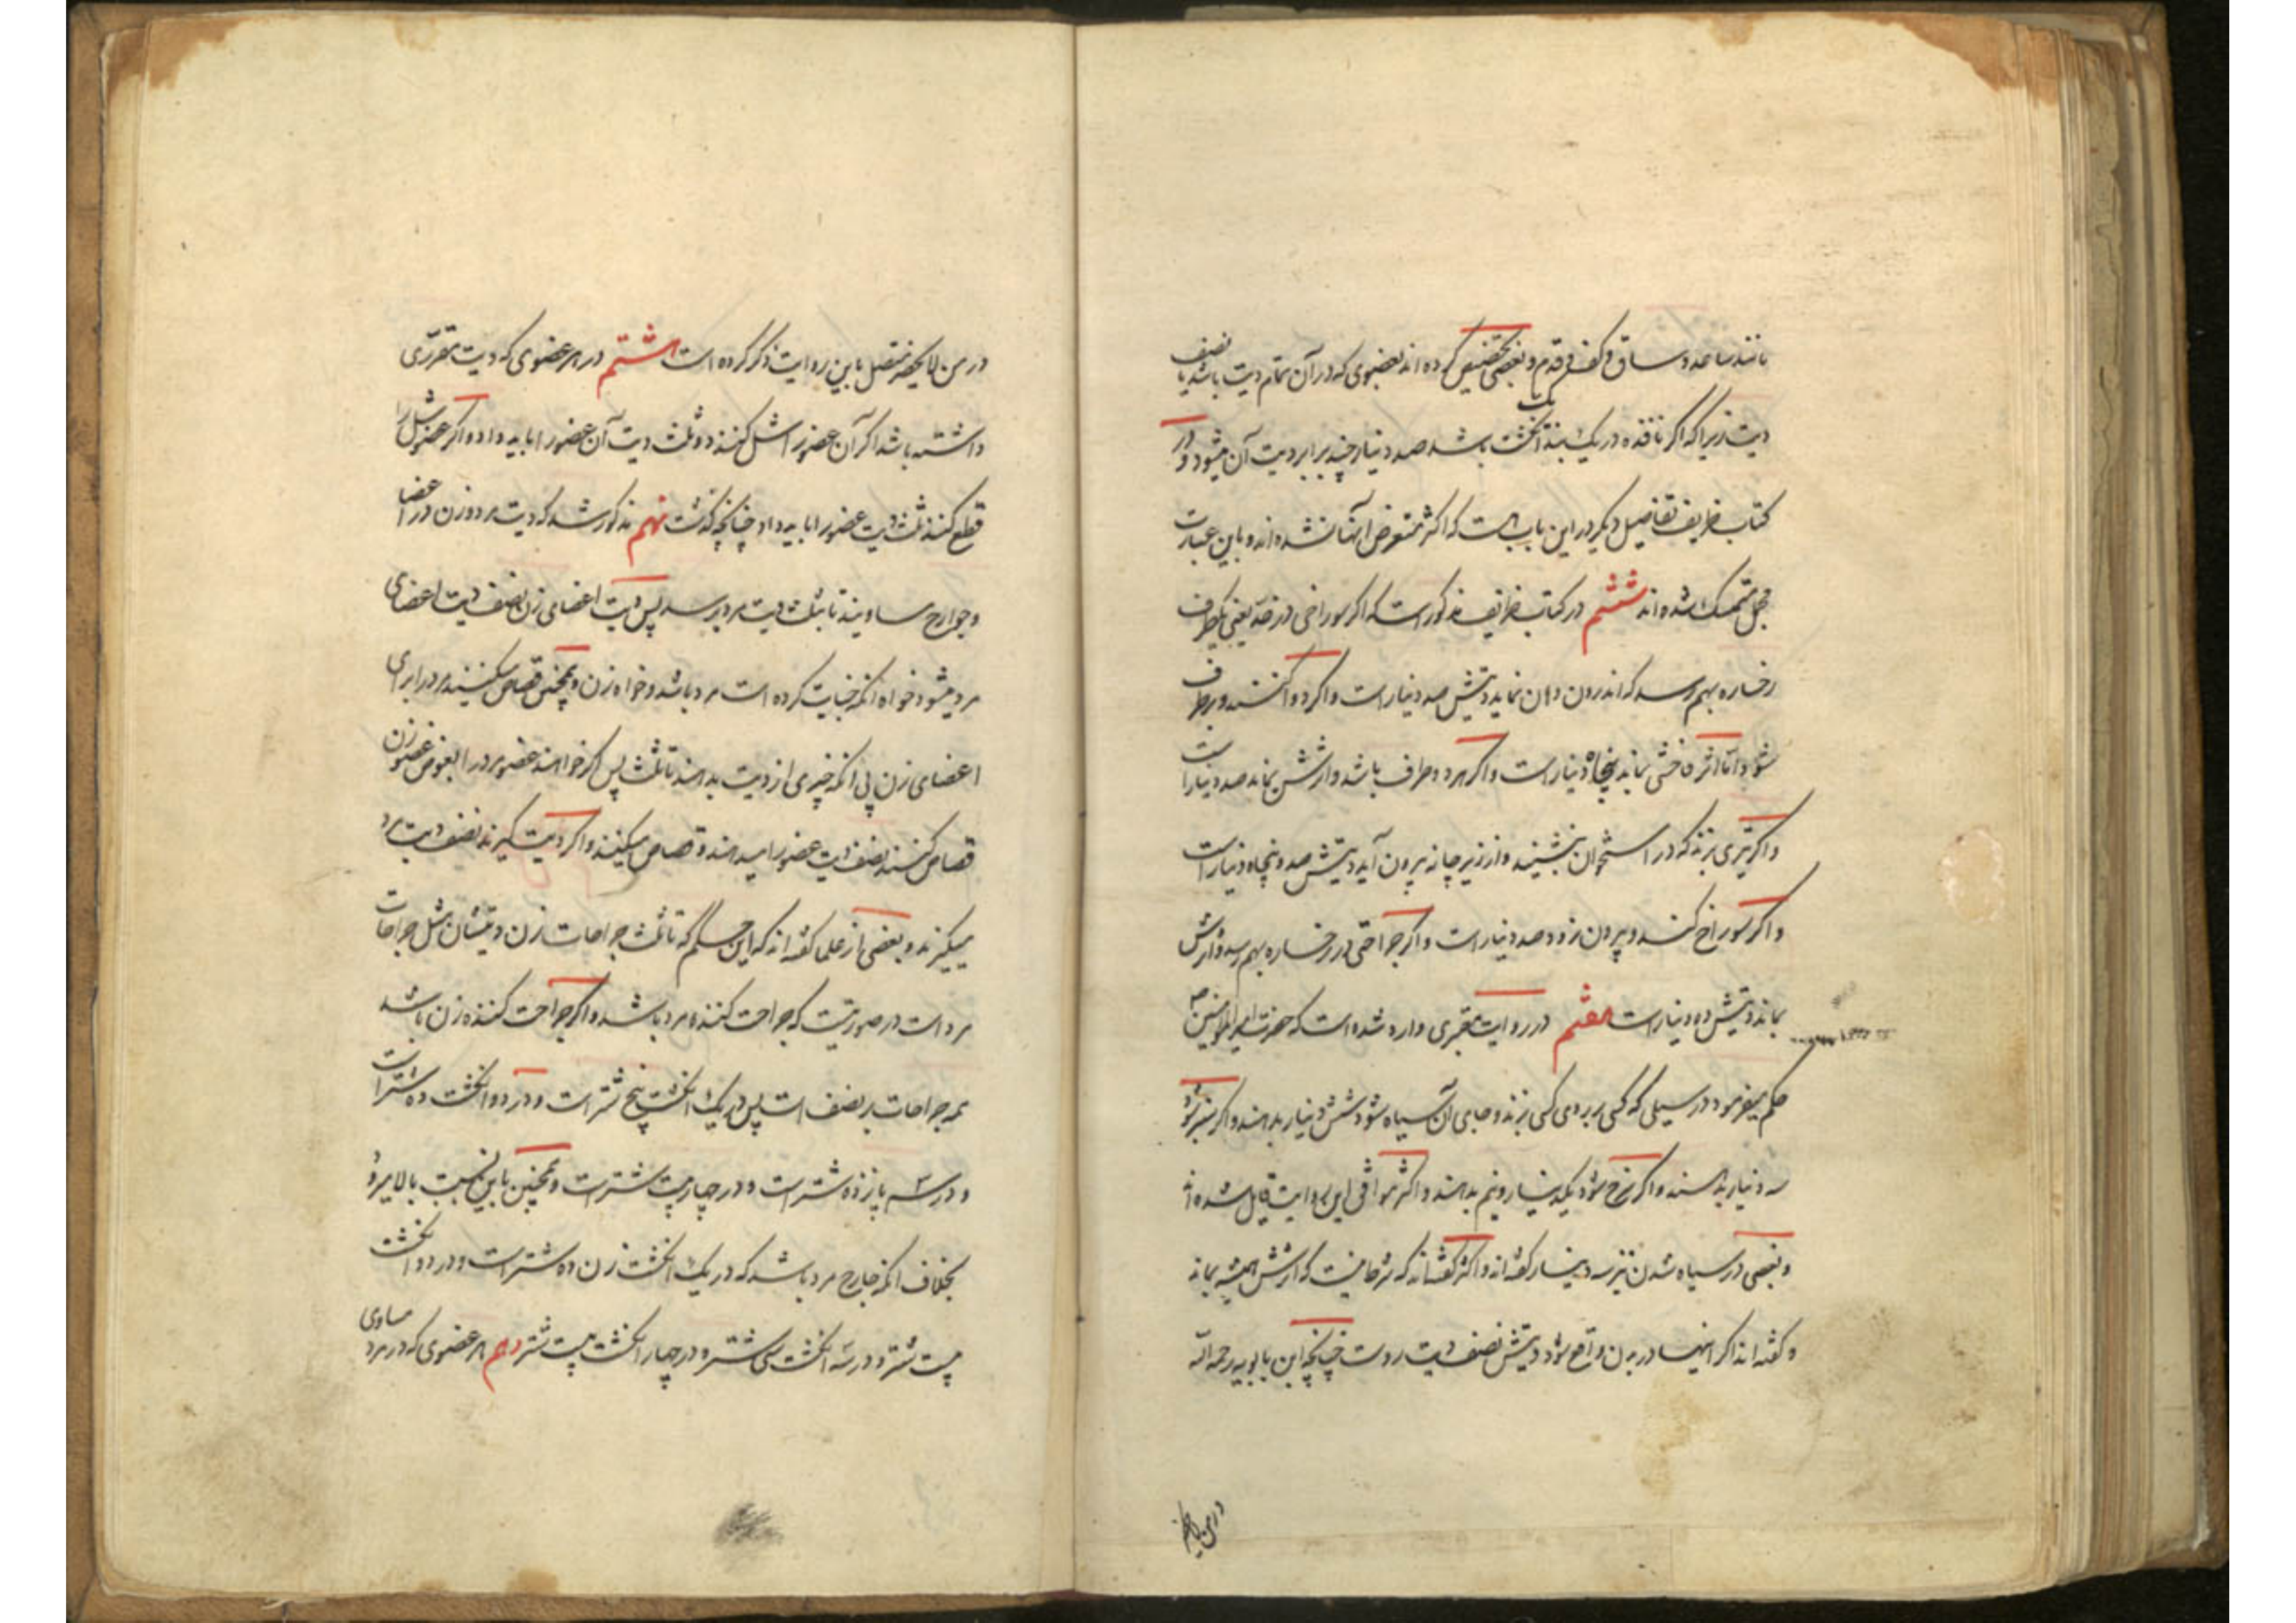 مانند ساعد و ساق و کف و قدم و بعضی تخصیص کرده اند بعضوی که در آن تمام دیت باشد یا نصف
دیت زیرا که اگر نافذه در یک بند انگشت باشد صد دینار چند برابر دیت آن میشود و در
کتاب ظریف تفاصیل دیگر در این باب هست که اکثر متعرض آنها نشده اند و باین عبارت
مجمل متمسک شده اند ششم در کتاب ظریف مذکور است که اگر سوراخی در خد یعنی یکطرف
رخساره بهم رسد که اندرون دهان نماید دیتش صد دینار است و اگر دوا کنند و برطرف
شود اما اثر فاحشی بماند پنجاه دینار است و اگر هر دو طرف باشد و ارشش بماند صد دینار است
و اگر تیری بزند که در استخوان بنشیند و از زیر چانه بیرون آید دیتش صد و پنجاه دینار است
و اگر سوراخ کند و بیرون نرود صد دینار است و اگر جراحتی در رخساره بهم رسد و ارش
بماند دیتش ده دینار است هفتم در روایت معتبری وارد شده است که حضرت امیر المومنین ص
حکم میفرمود در سیلی که کسی بر روی کسی بزند و جای آن سیاه شود شش دینار بدهند و اگر سبز شود
سه دینار بدهند و اگر سرخ شود یکدینار و نیم بدهند و اکثر موافق این روایت قایل شده اند
و بعضی در سیاه شدن نیز سه دینار گفته اند و اکثر گفته اند که شرط نیست که ارشش همیشه بماند
و گفته اند اگر اینها در بدن واقع شود دیتش نصف دیت روست چنانچه ابن بابویه رحمه الله
در من لا یحضر
در من لا یحضر متصل باین روایت ذکر کرده است هشتم در هر عضوی که دیت مقرری
داشته باشد اگر آن عضو را شل کنند دو ثلث دیت آن عضو را باید داد و اگر عضو شل را
قطع کنند ثلث دیت عضو را باید داد چنانچه گذشت نهم مذکور شد که دیت مرد و زن در اعضا
و جوارح مساویند تا بثلث دیت مرد برسد پس دیت اعضای زن نصف دیت اعضای
مرد میشود خواه آنکه جنایت کرده است مرد باشد و خواه زن و همچنین قصاص میکنند مرد را برای
اعضای زن بی آنکه چیزی از دیت بدهند تا ثلث پس اگر خواهند عضو مرد را بعوض عضو زن
قصاص کنند نصف دیت عضو را میدهند و قصاص میکنند و اگر دیت گیرند نصف دیت مرد
میگیرند و بعضی از علما گفته اند که این حکم که تا ثلث جراحات زن دیتشان مثل جراحات
مرد است در صورتیست که جراحت کننده مرد باشد و اگر جراحت کننده زن باشد
همه جراحات بر نصف است پس در یک انگشت پنج شتر است و در دو انگشت ده شتر است
و در سه پانزده شتر است و در چهار بیست شتر است و همچنین باین نسبت بالا میرود
بخلاف آنکه جارح مرد باشد که در یک انگشت زن ده شتر است و در دو انگشت
بیست شتر و در سه انگشت سی شتر و در چهار انگشت بیست شتر دهم هر عضوی که در مرد مساوی